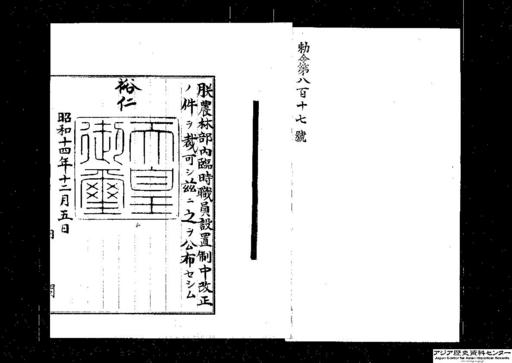 勅令第八百十七號
朕農林部內臨時職員設置制中改正
ノ件ヲ裁可シ茲ニ之ヲ公布セシム
裕仁
天皇
御璽
昭和十四年十二月五日
アジア歴史資料センター
Japan Center for Asian Historical Records